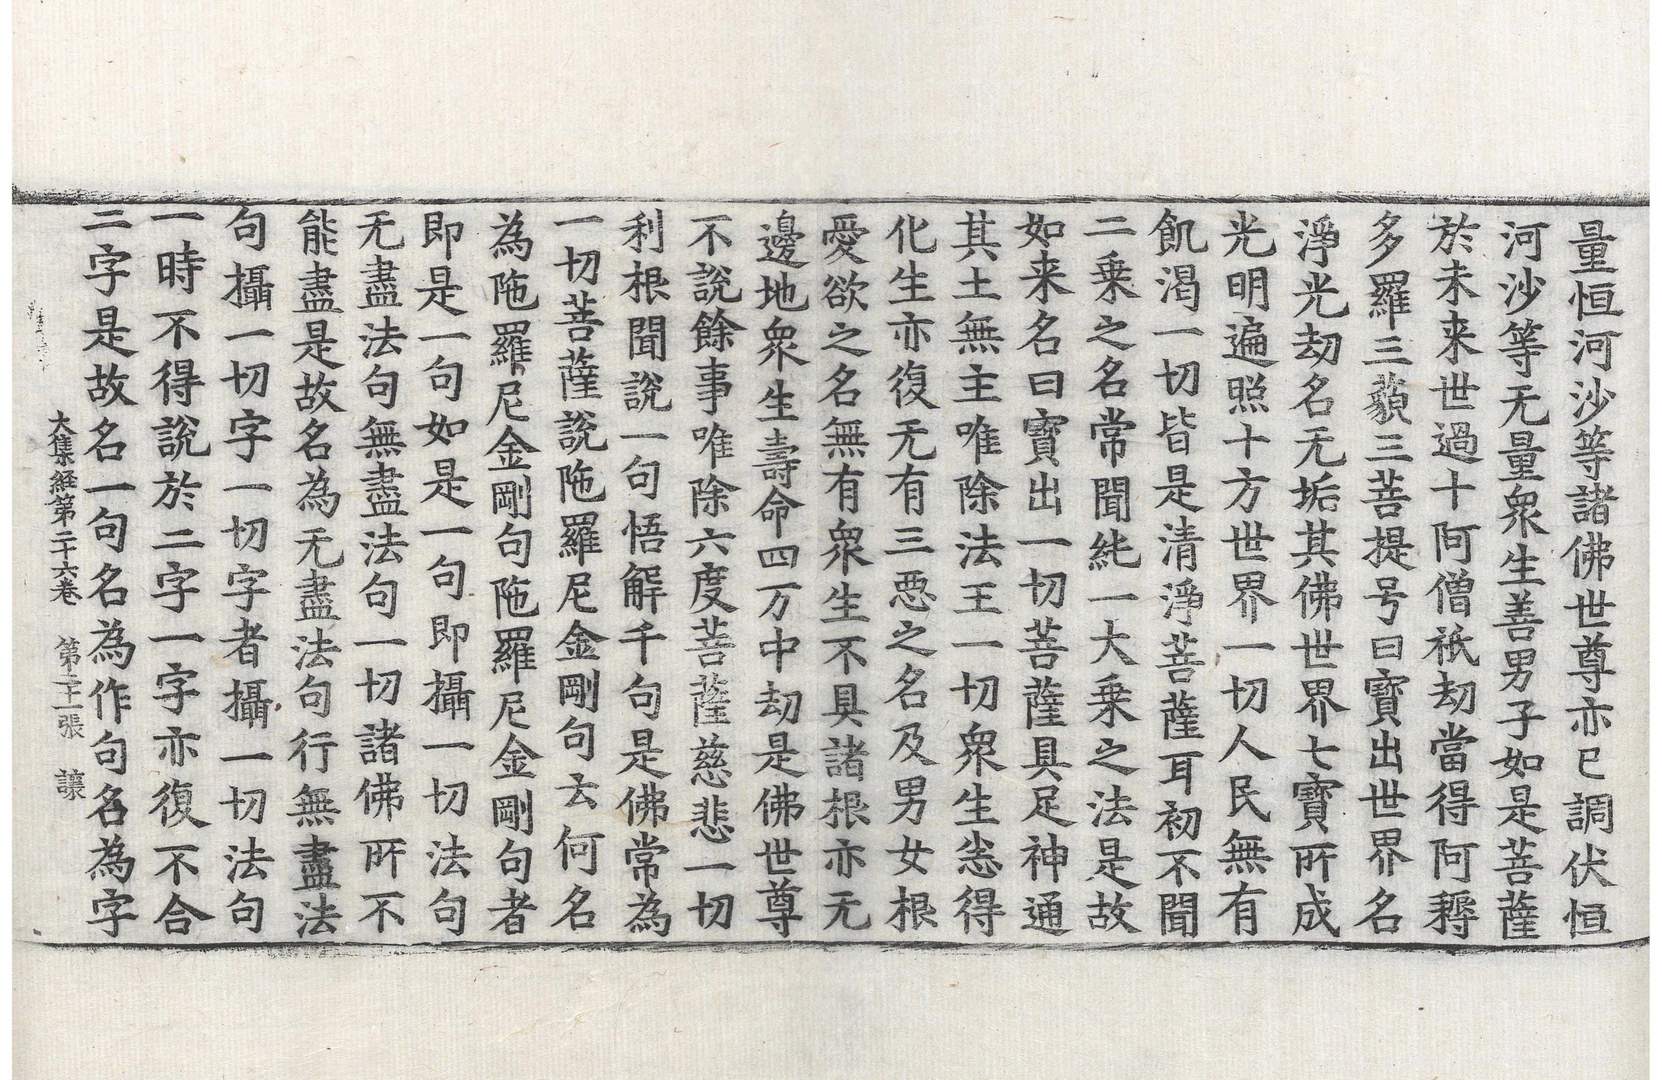 量恒河沙等諸佛世尊亦已調伏恒
河沙等无量衆生善男子如是菩薩
於未来世過十阿僧祇劫當得阿耨
多羅三藐三菩提号曰寶出世界名
淨光劫名无垢其佛世界七寶所成
光明遍照十方世界一切人民無有
飢渴一切皆是清淨菩薩耳初不聞
二乗之名常聞純一大乗之法是故
如来名曰寶出一切菩薩具足神通
其土無主唯除法王一切衆生悉得
化生亦復无有三惡之名及男女根
愛欲之名無有衆生不具諸根亦无
邊地衆生壽命四万中劫是佛世尊
不説餘事唯除六度菩薩慈悲一切
利根聞説一句悟解千句是佛常為
一切菩薩説陁羅尼金剛句云何名
為陁羅尼金剛句陁羅尼金剛句者
即是一句如是一句即攝一切法句
无盡法句無盡法句一切諸佛所不
能盡是故名為无盡法句行無盡法
句攝一切字一切字者攝一切法句
一時不得説於二字一字亦復不合
二字是故名一句名為作句名為字
大集経第二十六卷　第　張　讓